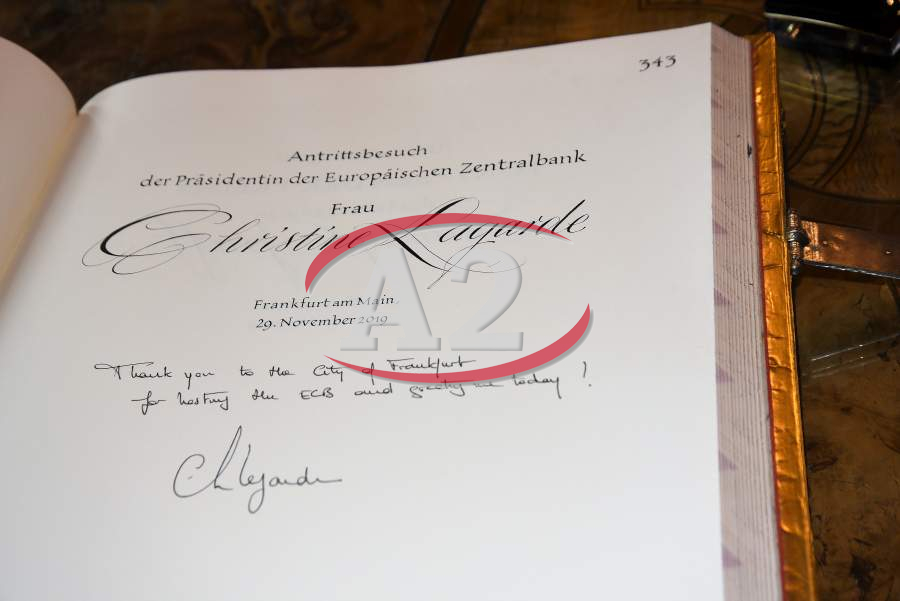 343
Antrittsbesuch
der Präsidentin der Europäischen Zentralbank
Frau
Christine Lagarde
Frankfurt am Main
29. November 2019
A2
Thank you to the City of Frankfurt
for hosting the ECB and greeting me today !
Ch Lagarde